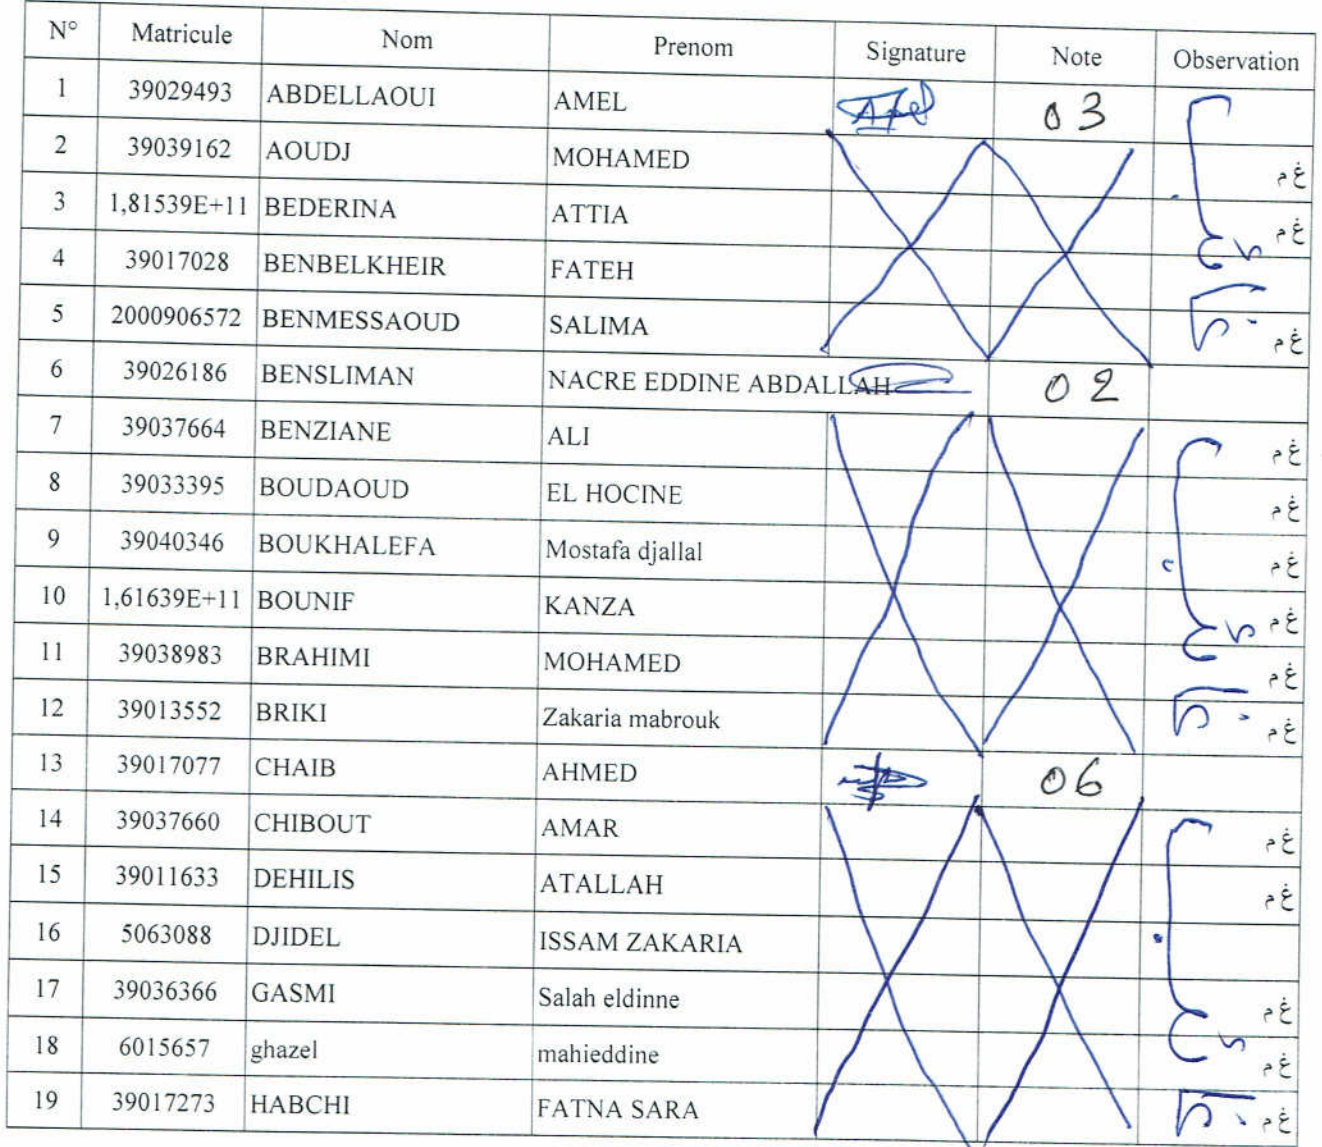 N° Matricule Nom Prenom Signature Note Observation
1 39029493 ABDELLAOUI AMEL 03
2 39039162 AOUDJ MOHAMED غ م
3 1,81539E+11 BEDERINA ATTIA غ م
4 39017028 BENBELKHEIR FATEH
5 2000906572 BENMESSAOUD SALIMA غ م
6 39026186 BENSLIMAN NACRE EDDINE ABDALLAH 02
7 39037664 BENZIANE ALI غ م
8 39033395 BOUDAOUD EL HOCINE غ م
9 39040346 BOUKHALEFA Mostafa djallal غ م
10 1,61639E+11 BOUNIF KANZA غ م
11 39038983 BRAHIMI MOHAMED غ م
12 39013552 BRIKI Zakaria mabrouk غ م
13 39017077 CHAIB AHMED 06
14 39037660 CHIBOUT AMAR غ م
15 39011633 DEHILIS ATALLAH غ م
16 5063088 DJIDEL ISSAM ZAKARIA
17 39036366 GASMI Salah eldinne غ م
18 6015657 ghazel mahieddine غ م
19 39017273 HABCHI FATNA SARA غ م